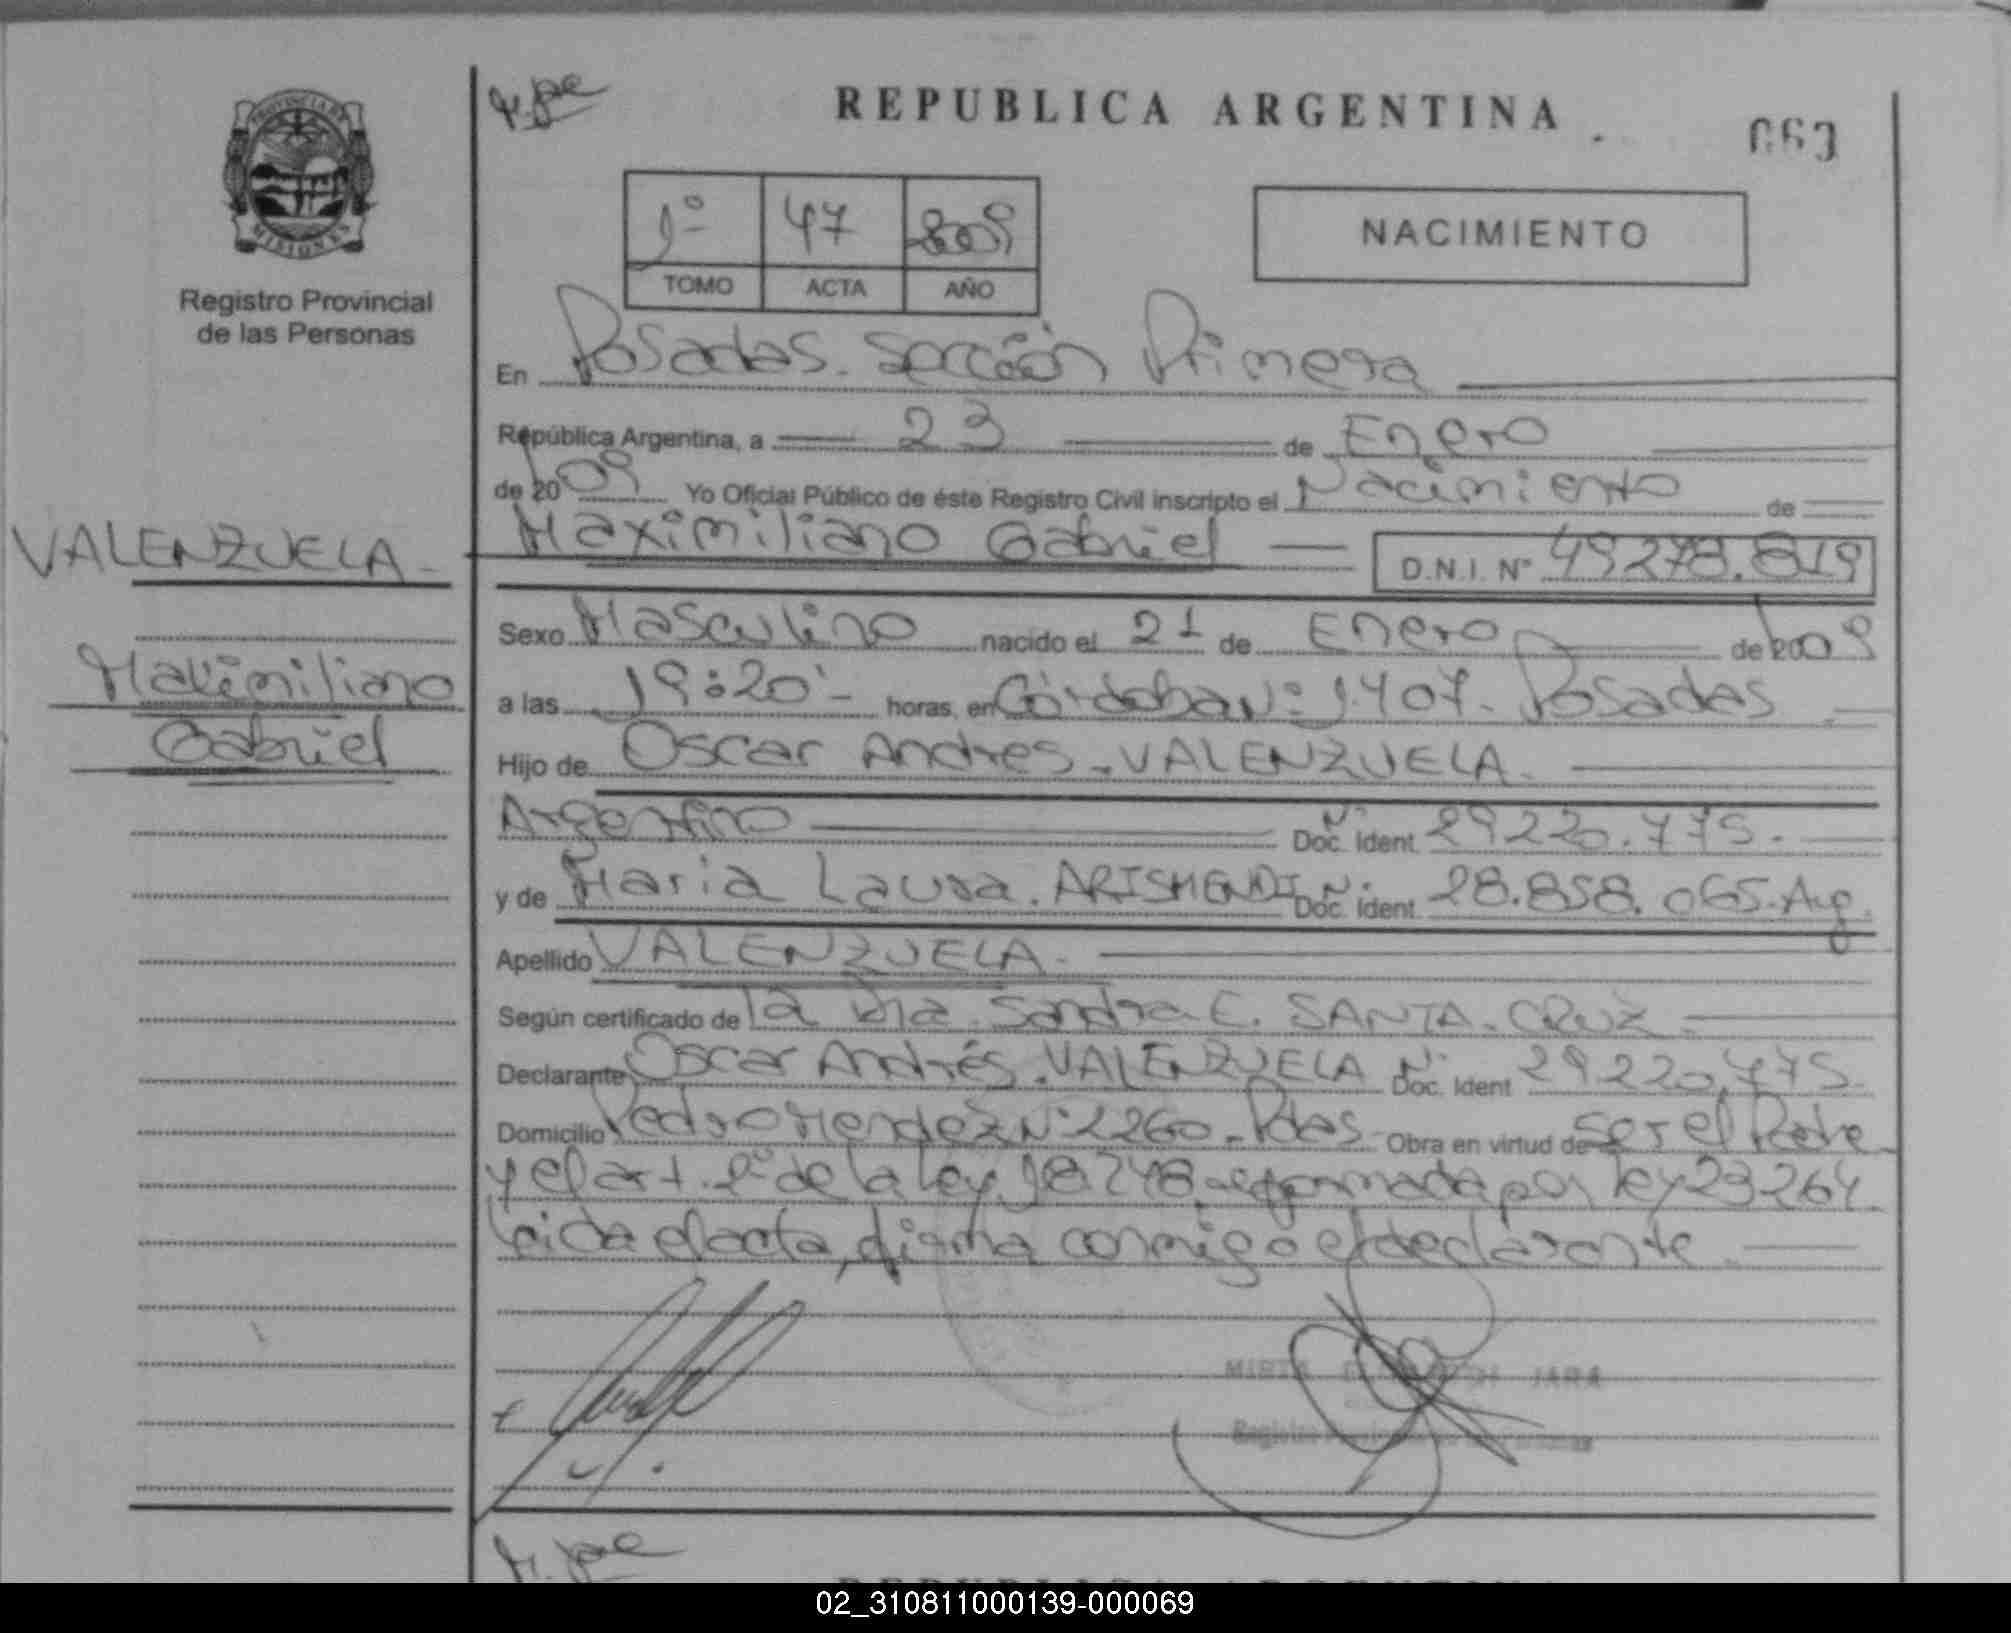 REPUBLICA ARGENTINA
PROVINCIA DE
MISIONES
Registro Provincial
de las Personas
1º 47 2009
TOMO ACTA AÑO
NACIMIENTO
En Posadas. Sección Primera
República Argentina, a 23 de Enero
de 2009 Yo Oficial Público de éste Registro Civil inscripto el Nacimiento de
VALENZUELA.
Maximiliano Gabriel D.N.I. Nº 49278.819
Sexo Masculino nacido el 21 de Enero de 2009
Maximiliano
a las 19:20'- horas, en Córdoba Nº 1407. Posadas
Gabriel
Hijo de Oscar Andres. VALENZUELA.
Argentino Nº Doc. Ident. 29220.775.
y de Maria Laura. ARISMENDI Nº Doc. Ident. 28.858.065. Arg.
Apellido VALENZUELA.
Según certificado de la Dra. Sandra E. SANTA. CRUZ.
Declarante Oscar Andrés. VALENZUELA Nº Doc. Ident 29220.775.
Domicilio Pedro Mendez Nº 2260. Pdas. Obra en virtud de ser el Padre
y el art. 2º de la Ley 18.248 reformada por Ley 23264
Leida el acta, firma conmigo el declarante.
MIRTA JARA
REPUBLICA ARGENTINA
02_310811000139-000069